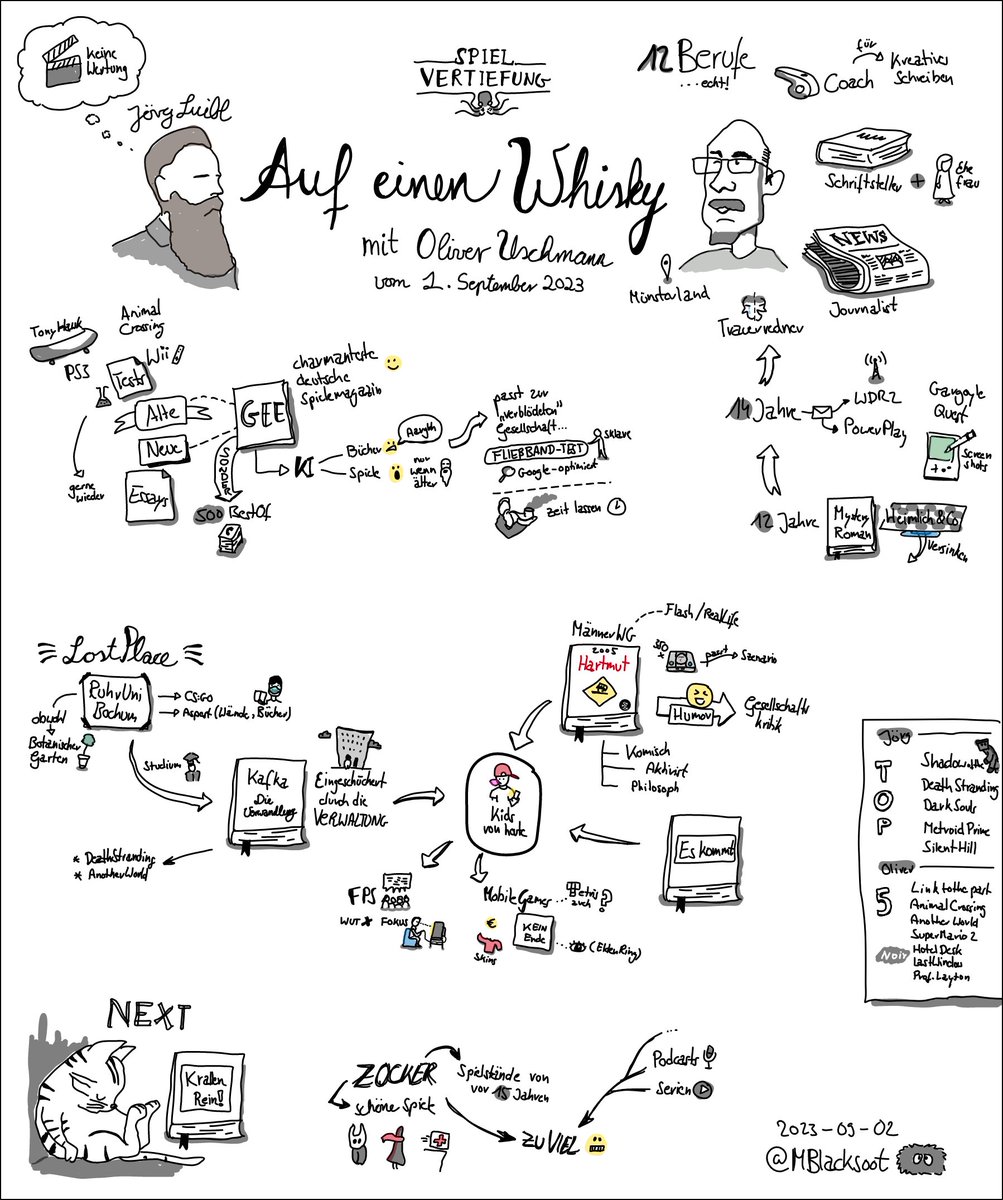 Keine
Wertung
Jörg Luibl
SPIEL
VERTIEFUNG
12 Berufe
...echt!
Coach
für
Kreatives
Schreiben
Auf einen Whisky
mit Oliver Uschmann
vom 1. September 2023
Schriftsteller +
Ehe
frau
NEWS
Journalist
Münsterland
Trauerredner
14 Jahre
WDR2
PowerPlay
Gargoyle
Quest
Screen
shots
12 Jahre
Mystery
Roman
Heimlich & Co
Versinken
Tony Hawk
PS3
Animal
Crossing
Wii
Tests
Alte
Neue
Essays
gerne
wieder
GEE
charmanteste
deutsche
Spielemagazin
500 BestOf
KI
Bücher
Aargth
Spiele
nur
wenn
älter
passt zur
"verblödeten"
Gesellschaft...
FLIEßBAND-TEXT
Sklave
Google-optimiert
Zeit lassen
Lost Place
RuhrUni
Bochum
CS:GO
Aspart (Wände, Bücher)
obwohl
Botanischer
Garten
Studium
Kafka
Die
Verwandlung
Eingeschüchert
durch die
VERWALTUNG
* DeathStranding
* AnotherWorld
MännerWG
Flash/RealLife
2005
Hartmut
PS1
passt
Szenario
Humor
Gesellschafts
kritik
Komisch
Aktivist
Philosoph
Kids
von heute
Es kommt
FPS
WUT
FOKUS
Mobile Games
Tetris
auch
?
€
Skins
KEIN
Ende
(Elden Ring)
Jörg
TOP
5
Shadow of the
Death Stranding
Dark Souls
Metroid Prime
Silent Hill
Oliver
Link to the past
Animal Crossing
Another World
Super Mario 2
Noir
Hotel Dusk
Last Window
Prof. Layton
NEXT
Krallen
Rein!
ZOCKER
Spielstände von
vor 15 Jahren
schöne Spiele
ZU VIEL
...
Podcasts
Serien
2023-09-02
@MBlacksoot